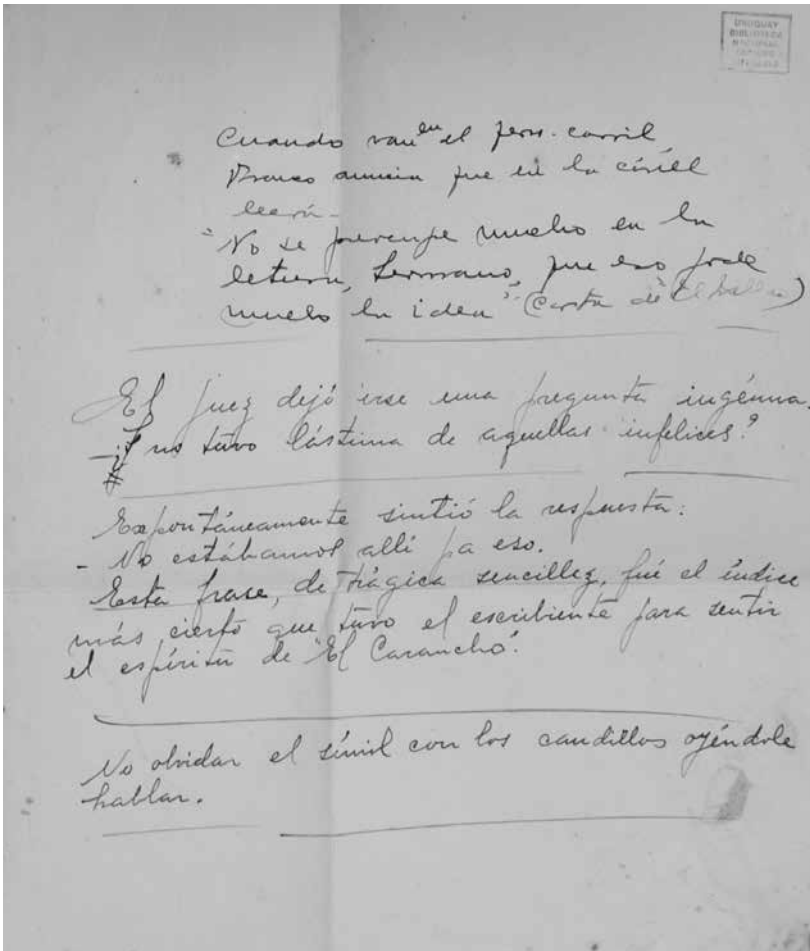 URUGUAY
BIBLIOTECA
NACIONAL
Cuando van en el ferro-carril
Bravo anuncia que en la cárcel
leerá-
"No se preocupe mucho en la
letura, hermano, que eso jode
mucho la idea" (Carta de El
El juez dejó irse una pregunta ingénua.
-¿Y no tuvo lástima de aquellas infelices?
Expontáneamente sintió la respuesta:
- No estábamos allí pa eso.
Esta frase, de trágica sencillez, fué el índice
más cierto que tuvo el escribiente para sentir
el espíritu de "El Carancho".
No olvidar el símil con los caudillos oyéndole
hablar.